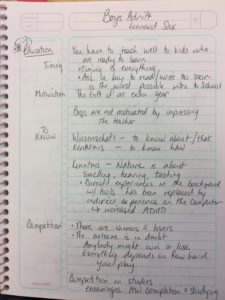 Boys Adrift
Leonard Sax
Education
You have to teach well to kids who
are ready to learn
Timing
• Timing is everything
• Ask a boy to read/write too soon
is the worst possible intro to school
Motivation
The gift of an extra year
Boys are not motivated by impressing
the teacher
To
Know
Wissenschaft – to know about/that
Kenntnis – to know how
Kenntnis – Nature is about
smelling, hearing, tasting
• Direct experiences in the backyard
w/ tools has been replaced by
indirect experiences on the computer
↳ increased ADHD
Competition
• There are winners & losers
• The outcome is in doubt
Anybody might win or lose
Everything depends on how hard
you play
Competition in studies
encourages HW completion & studying